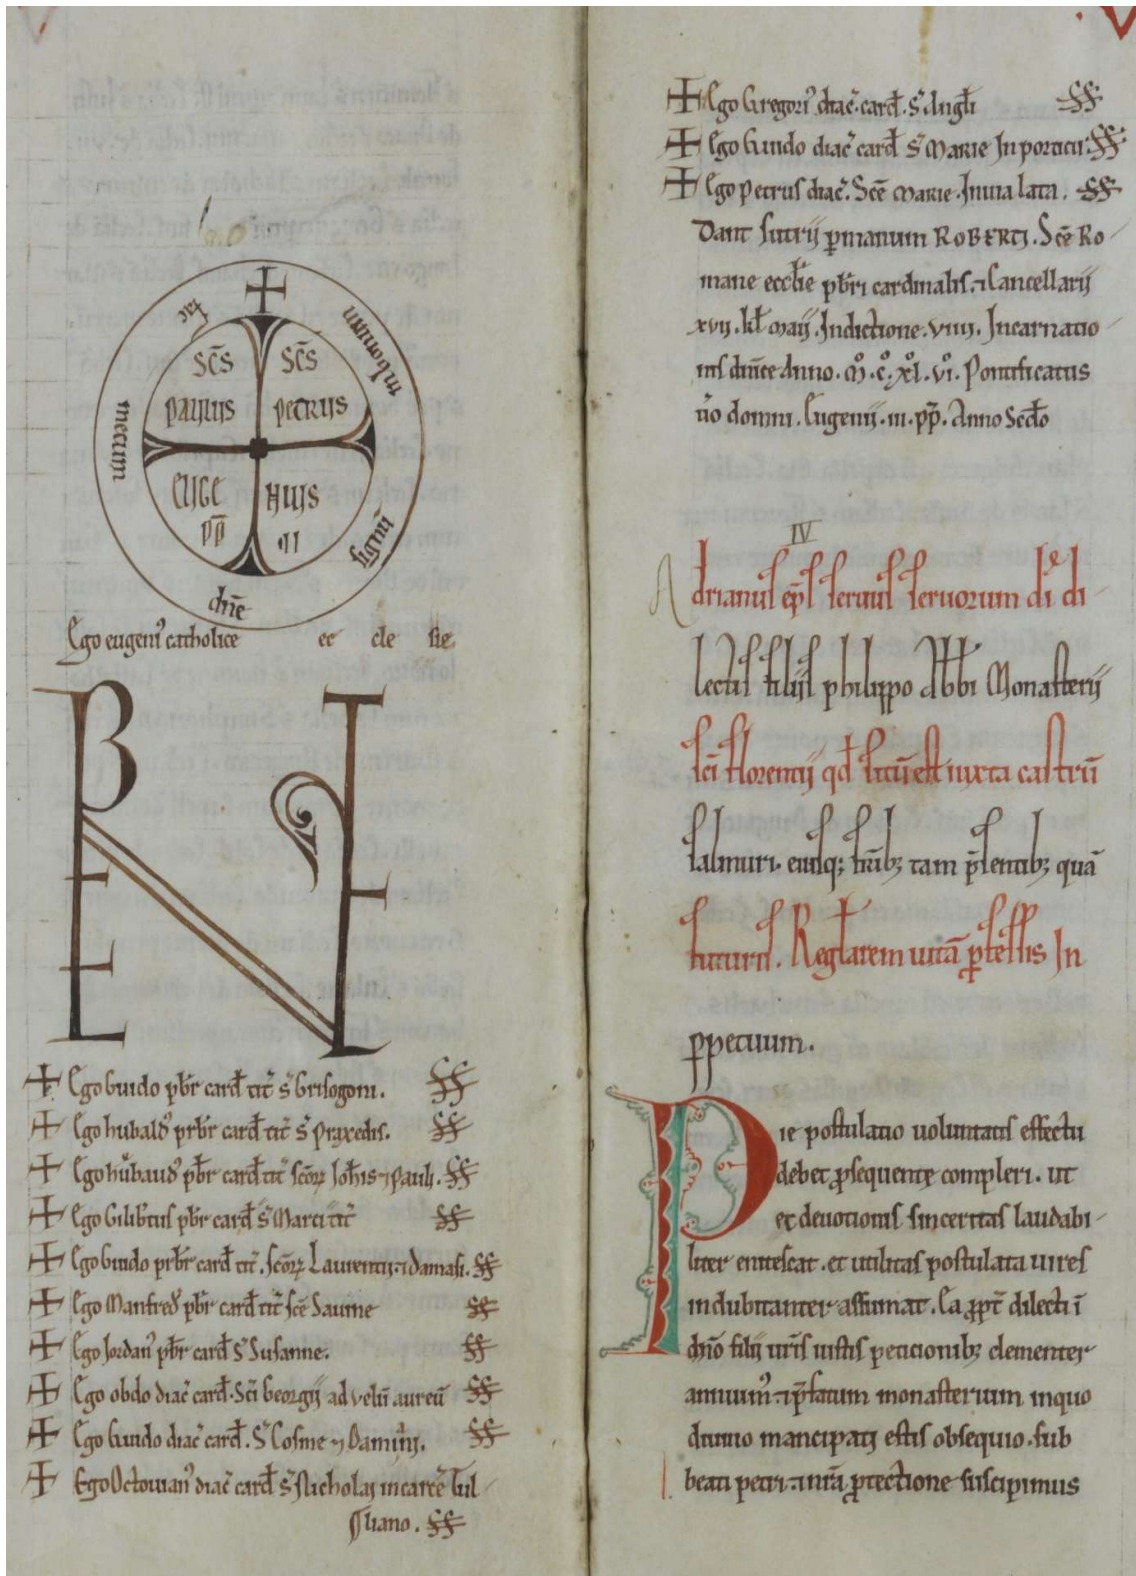 fac mecum dñe signũ in bonum
SC̄S SC̄S
PAULUS PETRUS
EUGE NIUS
PP̄ III
Ego eugeni᾽ catholice ec cle sie
BENE VALETE
+ Ego Guido pb̄r card̄ tit᷎ s᷎ Grisogoni.
+ Ego hubald᾽ prb̄r card̄ tit᷎ s᷎ Praxedis.
+ Ego hubaud᾽ pb̄r card̄ tit᷎ sc̄oꝝ Joh̄is ⁊ Pauli.
+ Ego Gilib̄tus pb̄r card̄ s᷎ Marci tit᷎
+ Ego Guido prb̄r card̄ tit᷎. Sc̄oꝝ Laurentij ⁊ Damasi.
+ Ego Manfred᾽ pb̄r card̄ tit᷎ sc̄e Sauine
+ Ego Jordan᾽ pb̄r card̄ s᷎ Susanne.
+ Ego obdo diac᷎ card̄. Sc̄i Georgij ad velũ aureũ
+ Ego Guido diac᷎ card̄. S᷎ Cosme ⁊ Damiani.
+ Ego Octouian᾽ diac᷎ card̄ s᷎ Nicholaj in carcē Tul
liano.
+ Ego Gregori᾽ diac᷎. card̄. s᷎ Angl̄i
+ Ego Guido diac᷎ card̄ s᷎ Marie In porticu.
+ Ego petrus diac᷎. Sc̄e Marie. In uia lata.
Dant sutrij ꝑ manum ROBERTI. Sc̄e Ro
mane eccl̄ie pb̄ri cardinalis. ⁊ Cancellarij
xvij. kl̄ Maij. Indictione. viiij. Incarnatio
nis dñice Anno. M̊. C̊. XL̊. VI̊. Pontificatus
ũo domni. Eugenij. iii. pp̄. Anno Scd̄o
IV
Adrianus ep̄s seruus seruorum di᷎ di
lectis filijs philippo abb̄i Monasterij
sc̄i florentij qd̄ sitũ est iuxta castrũ
salmuri. eiusqꝫ fr̄ibꝫ tam p̄sentibꝫ quã
futuris. Regl̄arem uitã ꝓfessis In
ꝑpetuum.
Pie postulatio uoluntatis effectu
debet ꝓsequente compleri. ut
et deuotionis sinceritas laudabi
liter enitescat. et utilitas postulata uires
indubitanter assumat. Ea ꝓpt᷎ dilecti ī
dño filij ur̄is iustis peticionibꝫ clementer
annuim᾽. ⁊ p̄fatum monasterium in quo
diuino mancipatj estis obsequio. sub
beati petri ⁊ nr̄a ꝓtectione suscipimus